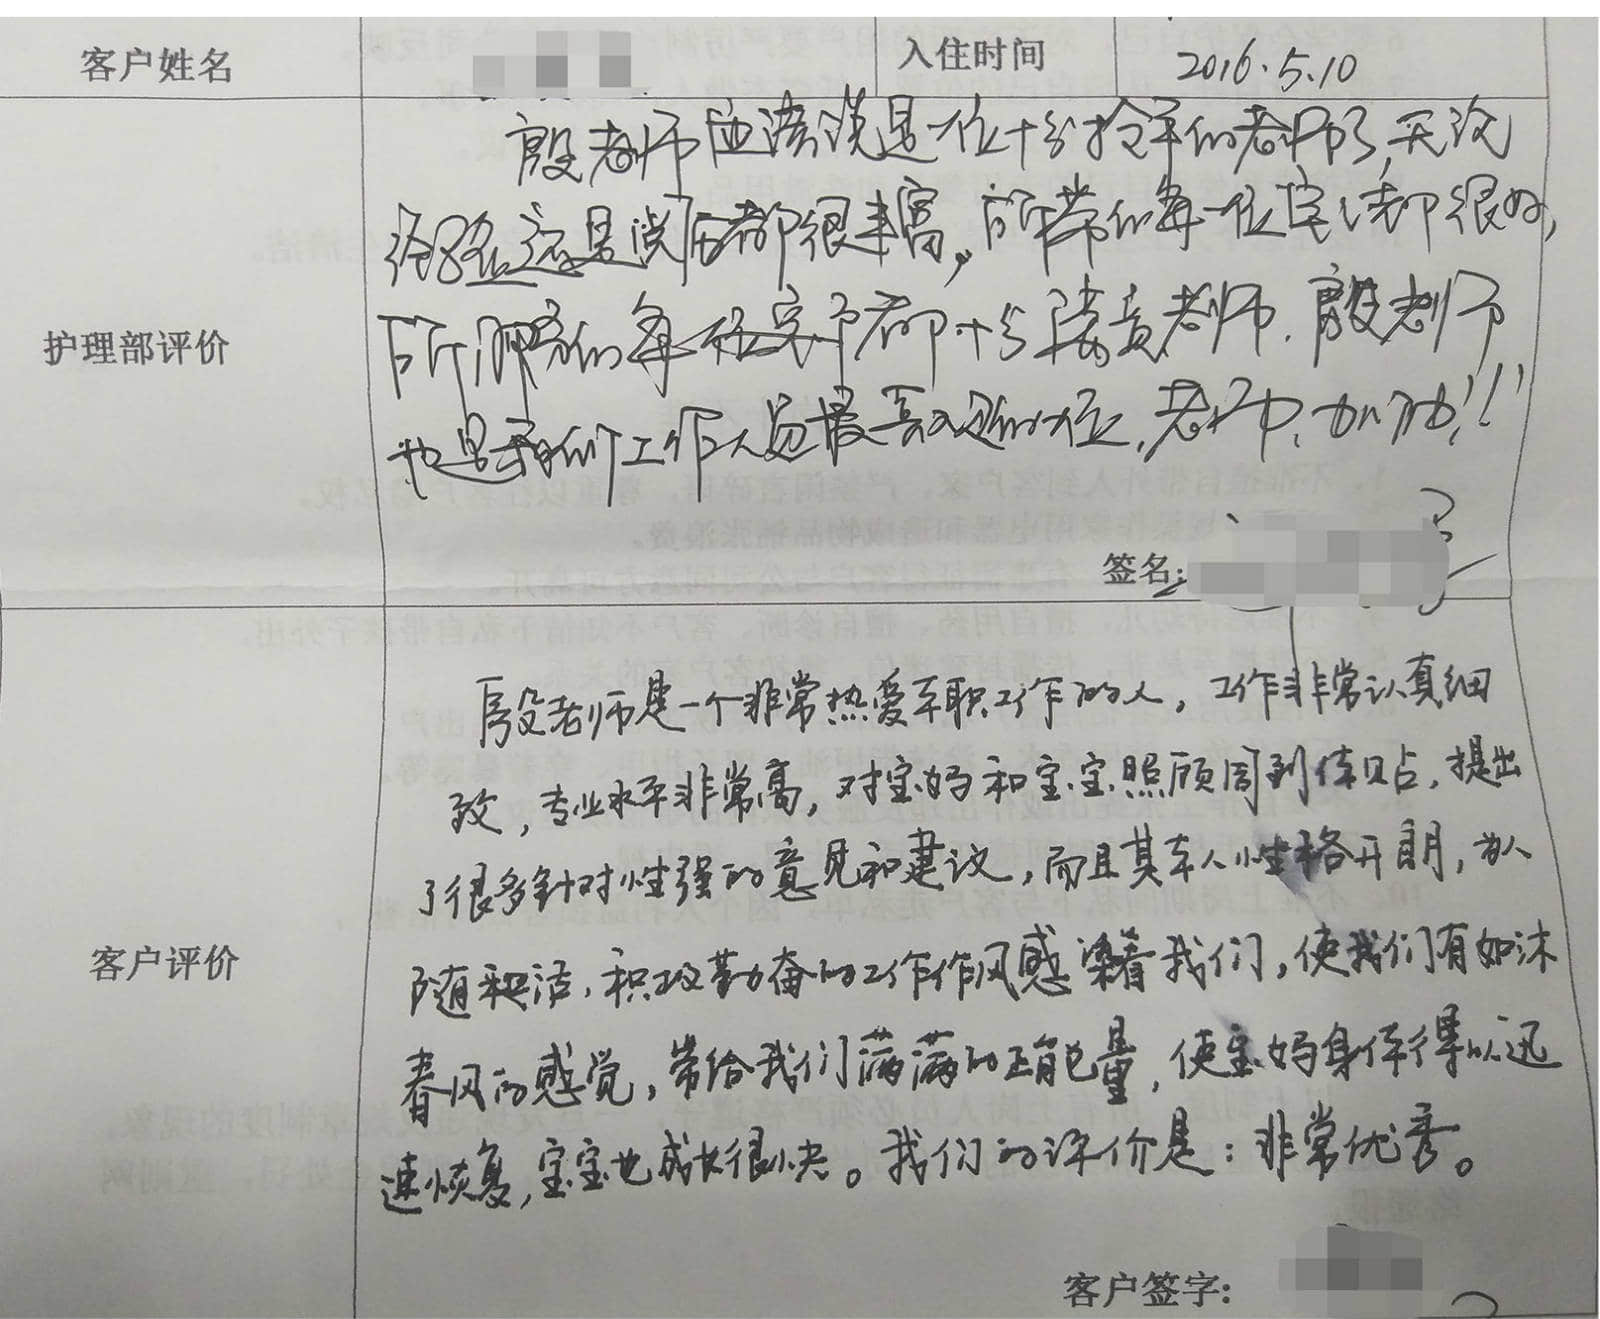 客户姓名
入住时间
2016.5.10
护理部评价
殷老师应该说是一位十分抢手的老师了,无论
经验还是阅历都很丰富。所带的每一位宝宝都很好,
所服务的每一位客户都十分满意老师.殷老师
也是我们工作人员最喜欢的一位,老师,加油!!!
签名:
客户评价
殷老师是一个非常热爱本职工作的人,工作非常认真细
致,专业水平非常高,对宝妈和宝宝照顾周到体贴,提出
了很多针对性强的意见和建议,而且其本人性格开朗,为人
随和,积极勤奋的工作作风感染着我们,使我们有如沐
春风的感觉,带给我们满满的正能量,使宝妈身体得以迅
速恢复,宝宝也成长很快。我们的评价是:非常优秀。
客户签字: